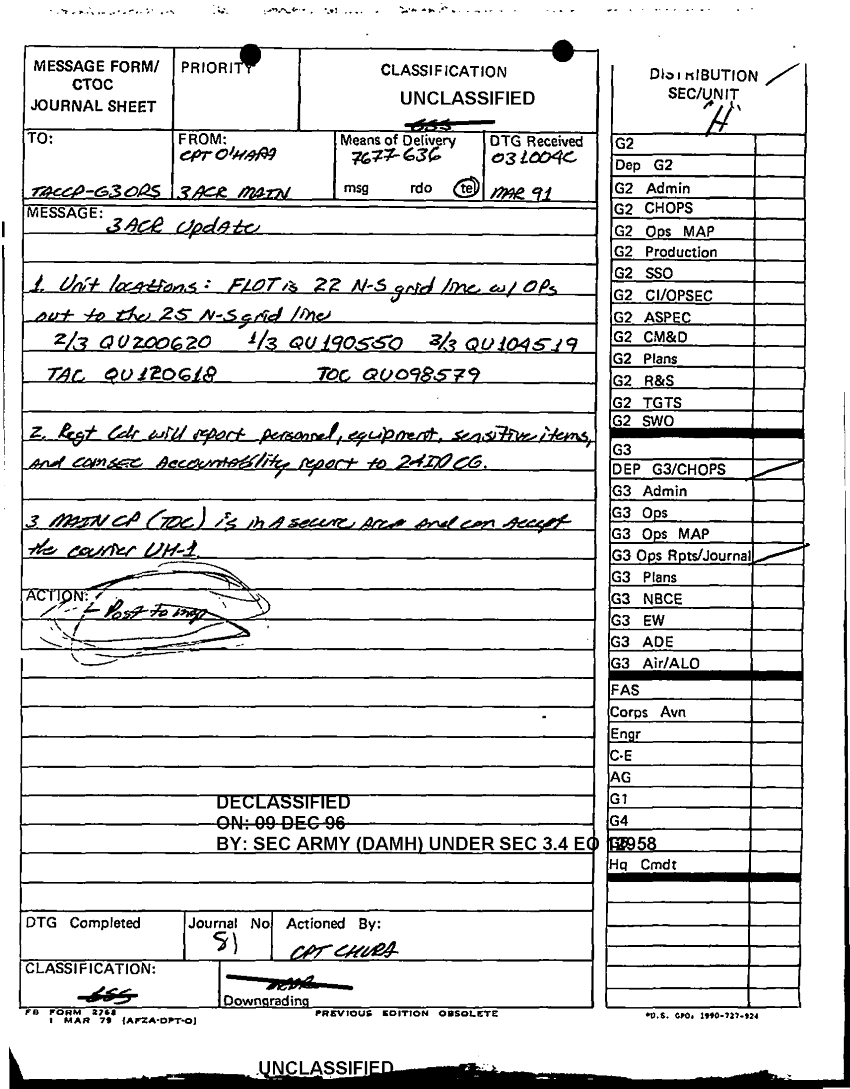 MESSAGE FORM/
CTOC
JOURNAL SHEET
PRIORITY
CLASSIFICATION
UNCLASSIFIED
TO:
TACCP-G3OPS
FROM:
CPT O'HARA
3ACR MAIN
Means of Delivery
7677-636
msg rdo te
DTG Received
031004C
MAR 91
MESSAGE:
3ACR Update
1. Unit locations: FLOT is 22 N-S grid line w/ OPs
out to the 25 N-S grid line
2/3 QU200620 1/3 QU190550 3/3 QU104519
TAC QU120618 TOC QU098579
2. Regt Cdr will report personnel, equipment, sensitive items,
and COMSEC Accountability report to 24ID CG.
3 MAIN CP (TOC) is in A secure Area and can accept
the courier UH-1.
ACTION:
- Post to map
DECLASSIFIED
ON: 09 DEC 96
BY: SEC ARMY (DAMH) UNDER SEC 3.4 EO 12958
DTG Completed
Journal No
81
Actioned By:
CPT CHURA
CLASSIFICATION:
Downgrading
FB FORM 2768
1 MAR 79 (AFZA-DPT-O)
PREVIOUS EDITION OBSOLETE
UNCLASSIFIED
DISTRIBUTION
SEC/UNIT
"H"
G2
Dep G2
G2 Admin
G2 CHOPS
G2 Ops MAP
G2 Production
G2 SSO
G2 CI/OPSEC
G2 ASPEC
G2 CM&D
G2 Plans
G2 R&S
G2 TGTS
G2 SWO
G3
DEP G3/CHOPS
G3 Admin
G3 Ops
G3 Ops MAP
G3 Ops Rpts/Journal
G3 Plans
G3 NBCE
G3 EW
G3 ADE
G3 Air/ALO
FAS
Corps Avn
Engr
C-E
AG
G1
G4
Hq Cmdt
*U.S. GPO: 1990-727-924